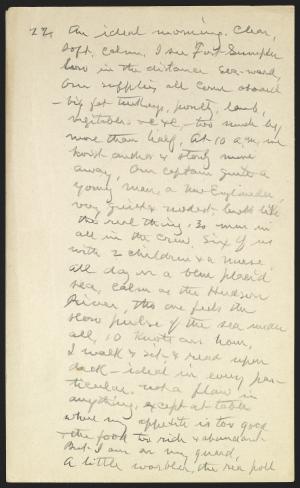 22, An ideal morning. Clear,
soft, calm. I see Fort Sumpter
low in the distance sea-ward,
Our supplies all come aboard
– big fat turkeys, poultry, lamb,
vegetables &c &c, – too much by
more than half, At 10 a.m. we
hoist anchor & slowly move
away, Our captain quite a
young man, a New Englander,
very quiet & modest, looks like
the real thing. 30 men in
all in the crew. Six of us
with 2 children & a nurse,
all day on a blue placid
sea, calm as the Hudson
River, tho one feels the
slow pulse of the sea under
all, 10 knots an hour,
I walk & sit & read upon
deck – ideal in every par-
ticular. not a flaw in
anything, except at table
where my appetite is too good
& the food too rich & abundant
But I am on my guard,
A little warbler, the red poll